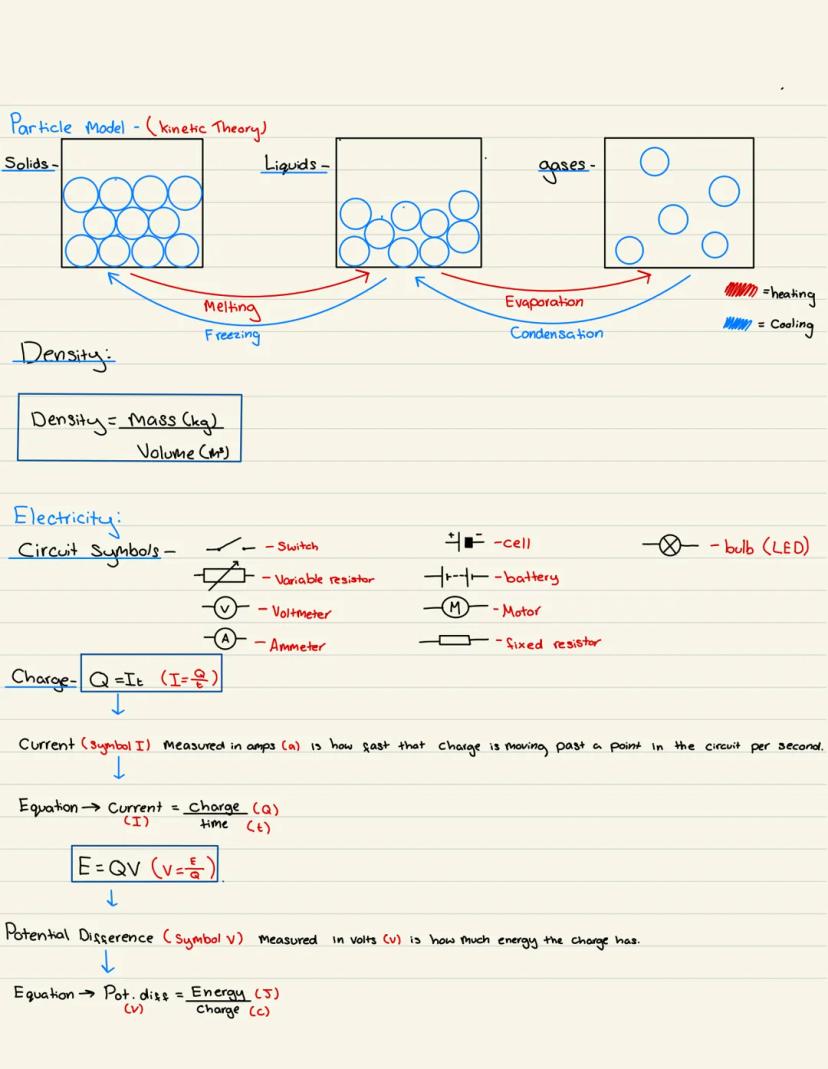 Particle Model - (Kinetic Theory)
Solids - Liquids - gases -
Melting
Freezing
Evaporation
Condensation
= heating
= Cooling
Density:
Density = Mass (kg)
Volume (m³)
Electricity:
Circuit Symbols -
- Switch
+ - - cell
- bulb (LED)
- Variable resistor
- battery
V - Voltmeter
M - Motor
A - Ammeter
- fixed resistor
Charge - Q = It (I = Q/t)
Current (Symbol I) Measured in amps (a) is how fast that charge is moving past a point in the circuit per second.
Equation → Current = charge (Q)
(I) time (t)
E = QV (V = E/Q)
Potential Difference (Symbol V) Measured in volts (V) is how much energy the charge has.
Equation → Pot. diff = Energy (J)
(V) Charge (C)